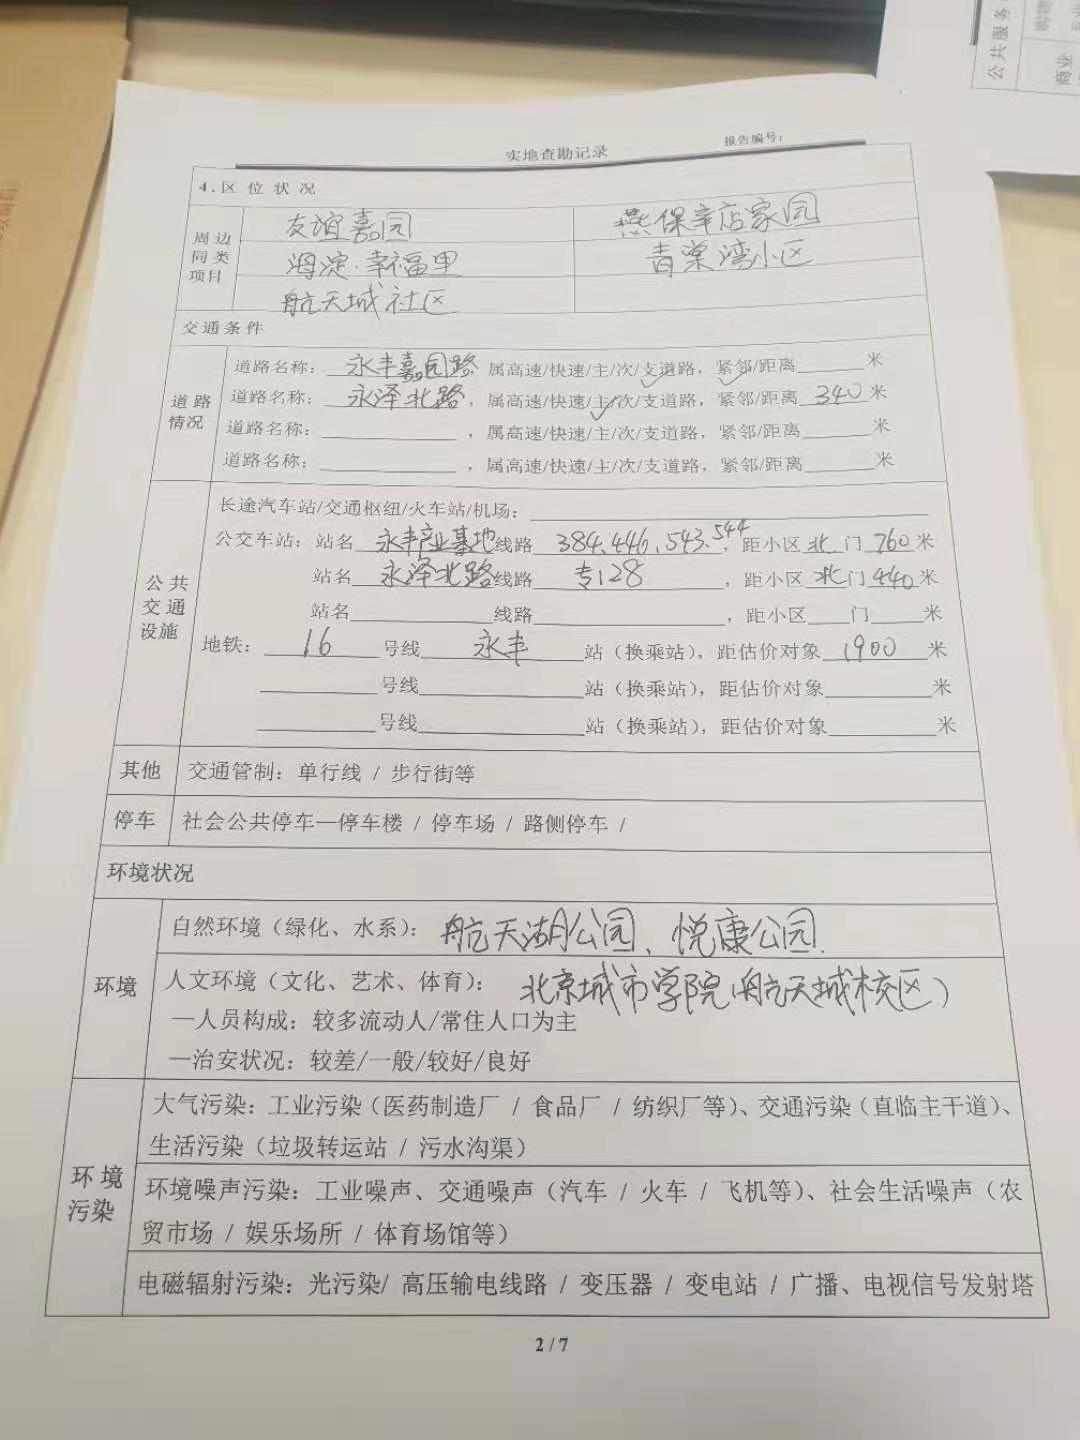 公共服务
商业
实地查勘记录
报告编号:
4.区位状况
周边同类项目
友谊嘉园 燕保辛店家园
海淀·幸福里 青棠湾小区
航天城社区
交通条件
道路情况
道路名称: 永丰嘉园路, 属高速/快速/主/次/支道路, 紧邻/距离______米
道路名称: 永泽北路, 属高速/快速/主/次/支道路, 紧邻/距离 340 米
道路名称:__________, 属高速/快速/主/次/支道路, 紧邻/距离______米
道路名称:__________, 属高速/快速/主/次/支道路, 紧邻/距离______米
公共交通设施
长途汽车站/交通枢纽/火车站/机场:
公交车站: 站名 永丰产业基地 线路 384、446、543、544, 距小区 北 门 760 米
站名 永泽北路 线路 专128, 距小区 北 门 440 米
站名__________线路__________, 距小区____门____米
地铁: 16 号线 永丰 站(换乘站), 距估价对象 1900 米
______号线__________站(换乘站), 距估价对象______米
______号线__________站(换乘站), 距估价对象______米
其他 交通管制: 单行线 / 步行街等
停车 社会公共停车—停车楼 / 停车场 / 路侧停车 /
环境状况
环境
自然环境(绿化、水系): 航天湖公园、悦康公园.
人文环境(文化、艺术、体育): 北京城市学院(航天城校区)
—人员构成: 较多流动人/常住人口为主
—治安状况: 较差/一般/较好/良好
环境污染
大气污染: 工业污染(医药制造厂 / 食品厂 / 纺织厂等)、交通污染(直临主干道)、
生活污染(垃圾转运站 / 污水沟渠)
环境噪声污染: 工业噪声、交通噪声(汽车 / 火车 / 飞机等)、社会生活噪声(农
贸市场 / 娱乐场所 / 体育场馆等)
电磁辐射污染: 光污染/ 高压输电线路 / 变压器 / 变电站 / 广播、电视信号发射塔
2 / 7